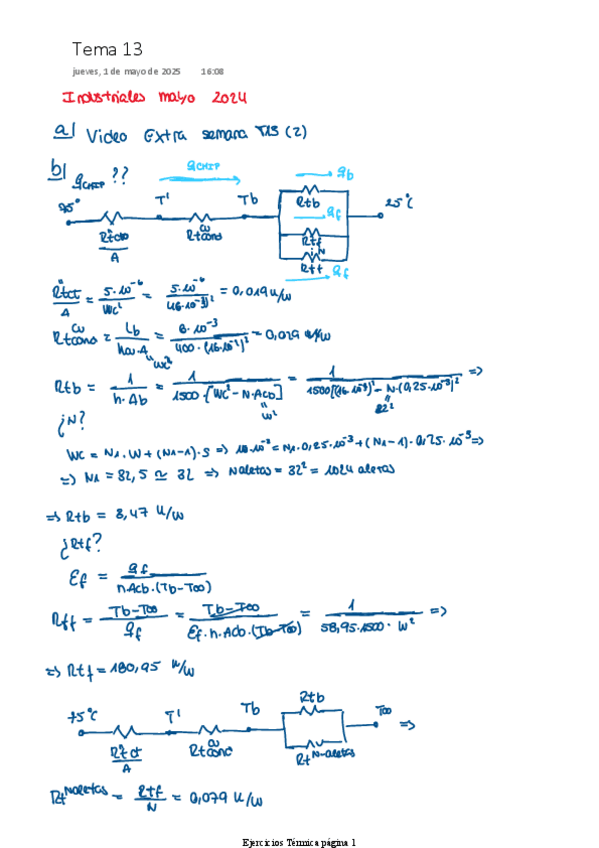 Tema 13
jueves, 1 de mayo de 2025 16:08
Industriales mayo 2024
a) Video Extra semana T13 (2)
b) qCHIP ?? qCHIP qb
75° T' Tb Rtb 25°C
qf
R"tct/A Rtcond Cu Rtf
N
Rtf qf
R"tct/A = 5·10^-6/Wc² = 5·10^-6/(16·10^-3)² = 0,019 K/W
Rtcond Cu = Lb/kcu·A = 8·10^-3/400·(16·10^-3)² = 0,029 K/W
"Wc²
Rtb = 1/h·Ab = 1/1500·[Wc²-N·Acb] = 1/1500[(16·10^-3)²-N·(0,25·10^-3)²] =>
" w² " 32²
¿N?
Wc = N1·W+(N1-1)·S => 16·10^-3 = N1·0,25·10^-3+(N1-1)·0,25·10^-3 =>
=> N1 = 32,5 ≃ 32 => Naletas = 32² = 1024 aletas
=> Rtb = 3,47 K/W
¿Rtf?
Ef = qf/h·Acb·(Tb-T∞)
Rtf = Tb-T∞/qf = Tb-T∞/Ef·h·Acb·(Tb-T∞) = 1/58,95·1500·W² =>
=> Rtf = 180,95 K/W
75°C T' Tb Rtb T∞ =>
R"tct/A Rtcond Cu Rt N-aletas
Rt Naletas = Rtf/N = 0,079 K/W
Ejercicios Térmica página 1